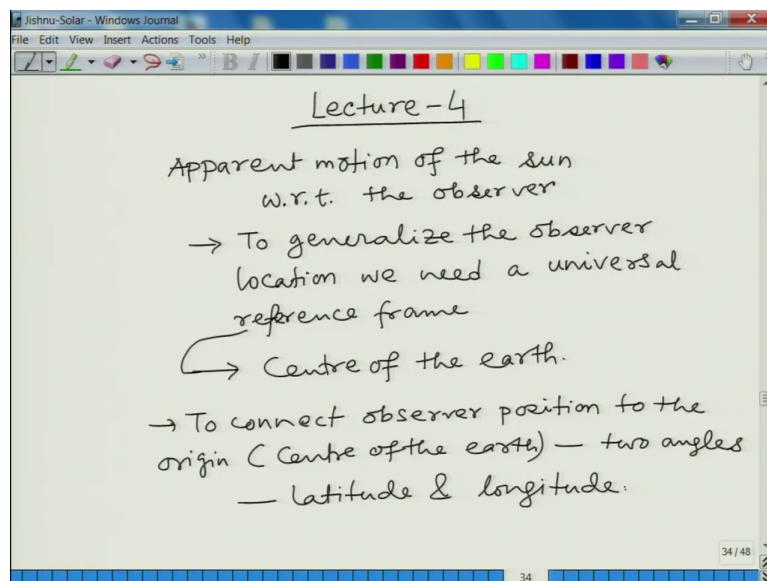 Jishnu-Solar - Windows Journal
File Edit View Insert Actions Tools Help
B I
Lecture-4
Apparent motion of the sun
w.r.t. the observer
→ To generalize the observer
location we need a universal
reference frame
→ Centre of the earth.
→ To connect observer position to the
origin (Centre of the earth) — two angles
— latitude & longitude.
34 / 48
34